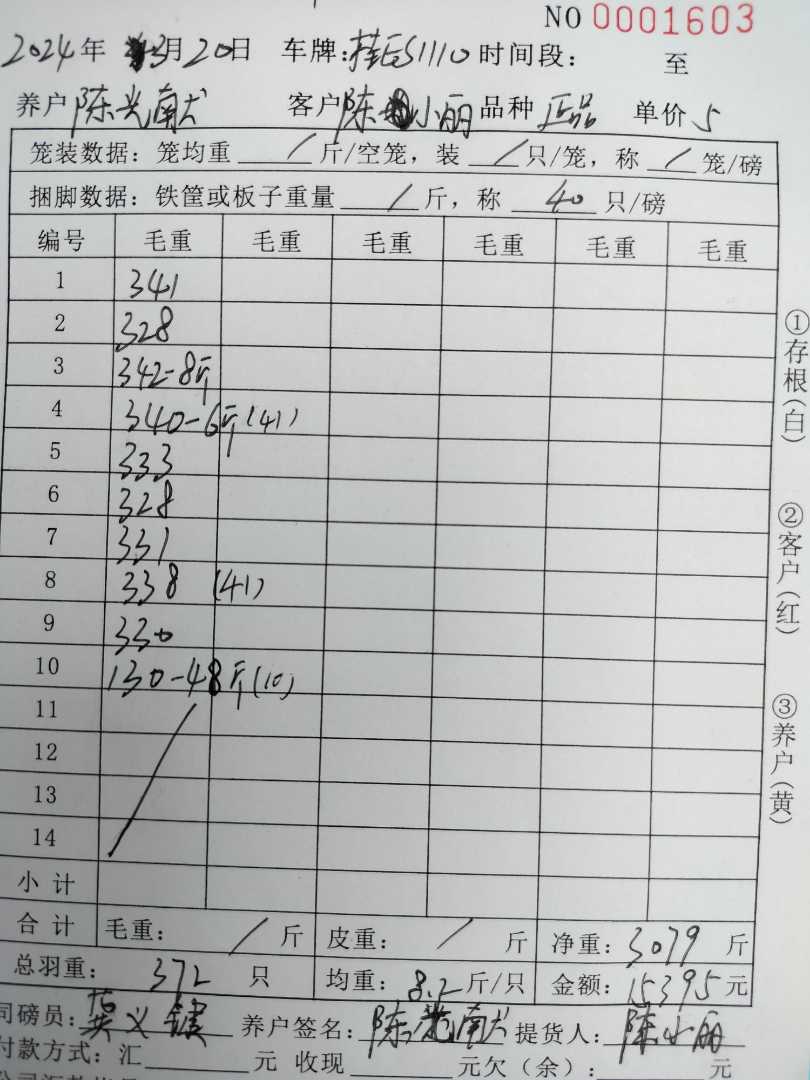 NO 0001603
2024年 3月20日 车牌: 1110 时间段: 至
养户 陈光南 客户 陈小丽 品种 正品 单价 5
笼装数据: 笼均重 / 斤/空笼, 装 / 只/笼, 称 / 笼/磅
捆脚数据: 铁筐或板子重量 / 斤, 称 40 只/磅
编号 毛重 毛重 毛重 毛重 毛重 毛重
1 341
2 328
3 342-8斤
4 340-6斤(41)
5 333
6 328
7 331
8 338 (41)
9 330
10 130-48斤(10)
11
12
13
14
小计
合计 毛重: / 斤 皮重: / 斤 净重: 3079 斤
总羽重: 372 只 均重: 8.2斤/只 金额: 15395元
司磅员: 养户签名: 陈光南 提货人: 陈小丽
付款方式: 汇 元 收现 元欠(余): 元
①存根(白)
②客户(红)
③养户(黄)